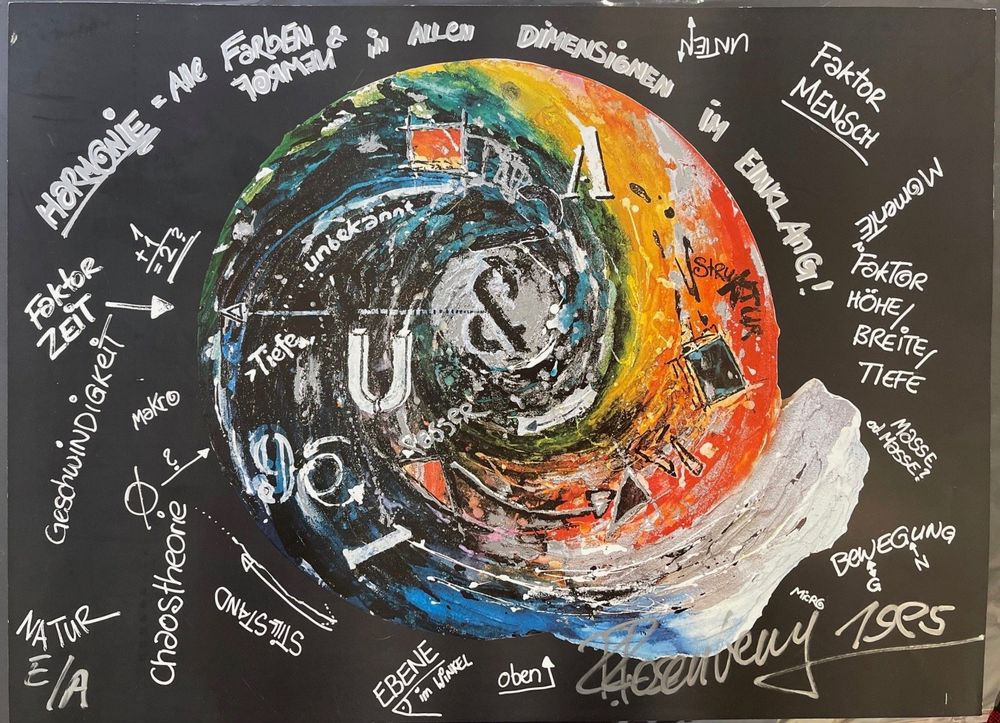 HARMONIE = Alle FarbEN &
FORMEN in ALLEN DIMENSIONEN im EINKLANG!
UNTEN
Faktor
MENSCH
Momente
FAKTOR
HÖHE/
BREITE/
TIEFE
MASSE,
BEWEGUNG
G N
MICRO
1
+1
=2?
Faktor
ZEIT
GeschwINDIGKEIT
Makro
Chaostheorie ?
STILLSTAND
NATUR
E/A
EBENE
im WINKEL
oben
1995
unbekannt
>Tiefe
STRUKTUR
A
U
96
1